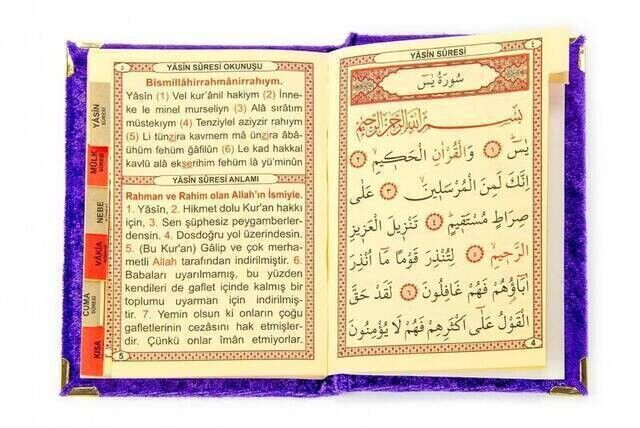 ٥
YÂSİN SÛRESİ OKUNUŞU
Bismillâhirrahmânirrahıym.
Yâsîn (1) Vel kur'ânil hakiym (2) İnne-
ke le minel murseliyn (3) Alâ sırâtım
müstekıym (4) Tenziylel aziyzir rahıym
(5) Li tünzira kavmem mâ ünzira âbâ-
ühüm fehüm ğâfilûn (6) Le kad hakkal
kavlü alâ ekserihim fehüm lâ yü'minûn
YÂSİN SÛRESİ ANLAMI
Rahman ve Rahim olan Allah'ın İsmiyle.
1. Yâsîn, 2. Hikmet dolu Kur'an hakkı
için, 3. Sen şüphesiz peygamberler-
densin. 4. Dosdoğru yol üzerindesin.
5. (Bu Kur'an) Gâlip ve çok merha-
metli Allah tarafından indirilmiştir. 6.
Babaları uyarılmamış, bu yüzden
kendileri de gaflet içinde kalmış bir
toplumu uyarman için indirilmiş-
tir. 7. Yemin olsun ki onların çoğu
gafletlerinin cezasını hak etmişler-
dir. Çünkü onlar îmân etmiyorlar.
5
YÂSİN
SÛRESİ
MÜLK
SÛRESİ
NEBE
VÂKIA
CUMA
SÛRESİ
KISA
YÂSİN SÛRESİ
٤
سُورَةُ يٰسٓ
بِسْمِ اللّٰهِ الرَّحْمٰنِ الرَّحِيمِ
يٰسٓ ﴿١﴾ وَالْقُرْاٰنِ الْحَكِيمِ ﴿٢﴾
اِنَّكَ لَمِنَ الْمُرْسَلِينَ ﴿٣﴾ عَلٰى
صِرَاطٍ مُسْتَقِيمٍ ﴿٤﴾ تَنْزِيلَ الْعَزِيزِ
الرَّحِيمِ ﴿٥﴾ لِتُنْذِرَ قَوْمًا مَٓا اُنْذِرَ
اٰبَٓاؤُ۬هُمْ فَهُمْ غَافِلُونَ ﴿٦﴾ لَقَدْ حَقَّ
الْقَوْلُ عَلٰٓى اَكْثَرِهِمْ فَهُمْ لَا يُؤْمِنُونَ
4